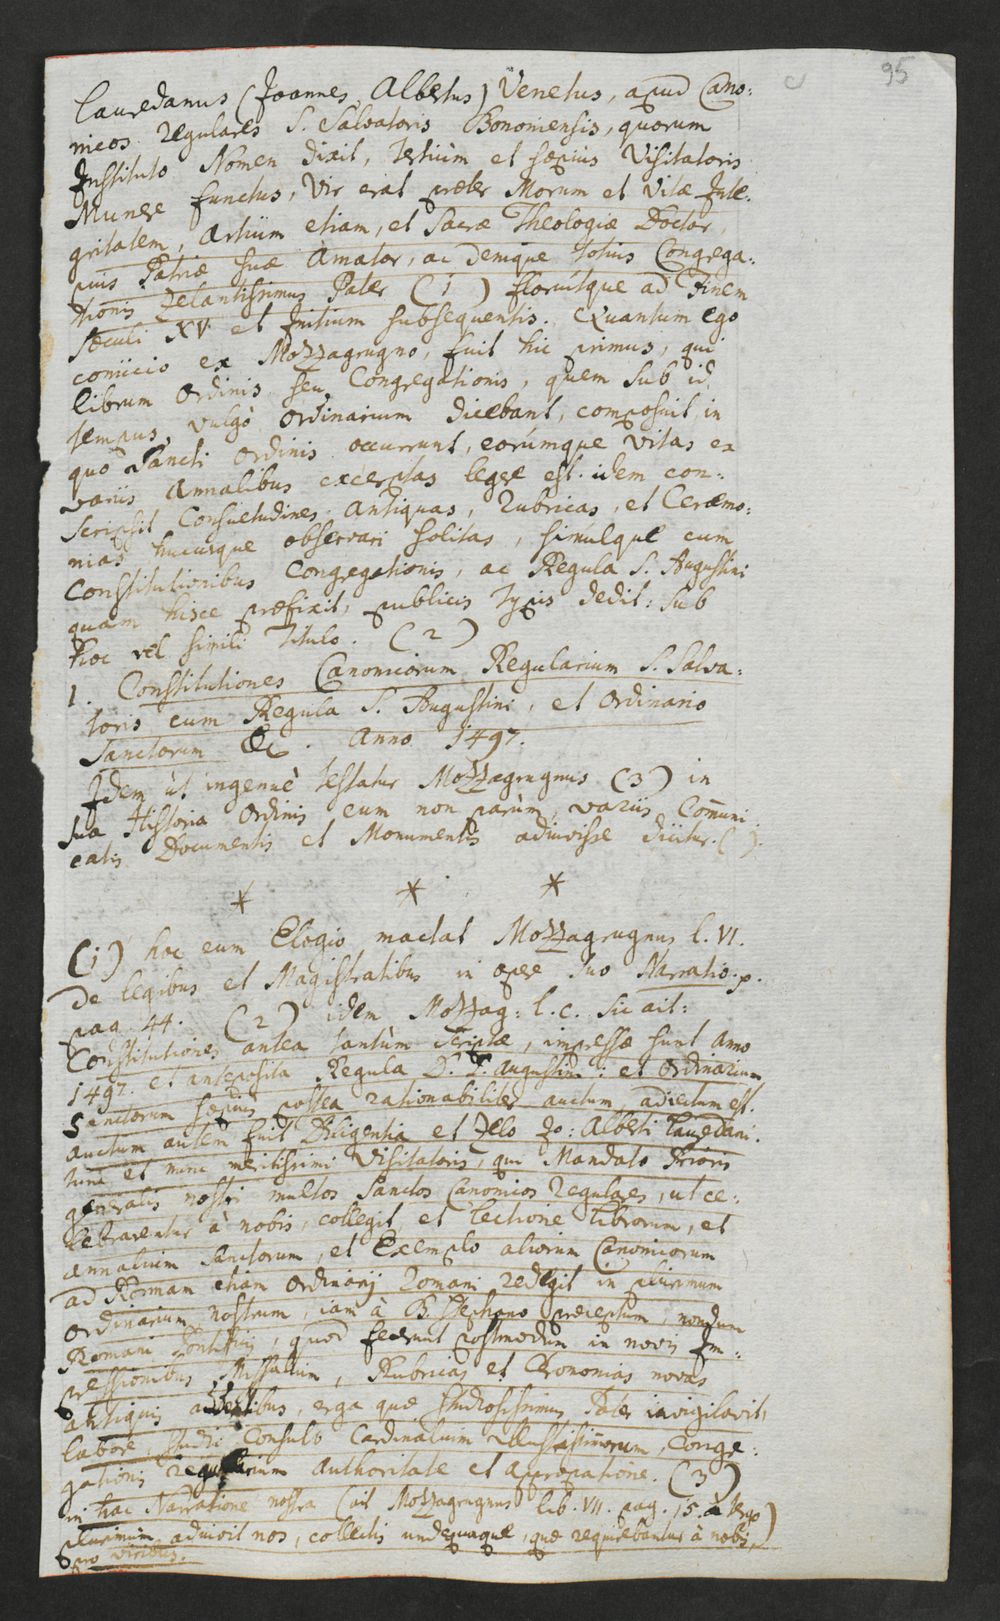 95
Lauredanus (Joannes Albertus) Venetus, apud Cano:
nicos regulares S. Salvatoris Bononiensis, quorum
Instituto Nomen dixit, tertiùm et sæpius Visitatoris
Munere functus, Vir erat præter Morum et Vitæ Inte:
gritatem, Artium etiam, et Sacræ Theologiæ Doctor,
pius Patriæ suæ Amator, ac demque totius Congrega:
tionis Zelantissimus Pater (1) floruitque ad Finem
Sæculi XV et Initium subsequentis. Quantum ego
coniicio ex Mozzagrugno, fuit hic primus, qui
librum Ordinis seu Congregationis, quem sub id
tempus vulgò Ordinarium dicebant, composuit, in
quo Sancti Ordinis occurrunt, eorúmque Vitas ex
variis Annalibus excerptas legere est. idem con:
scripsit Consuetudines Antiquas, Rubricas, et Ceræmo:
nias hucusque observari solitas, simúlque cum
Constitutionibus Congregationis, ac Regula S. Augustini
quam hisce præfixit, publicis Typis dedit: sub
hoc vel simili Titulo. (2)
1. Constitutiones Canonicorum Regularium S. Salva:
toris cum Regula S. Augustini, et Ordinario
Sanctorum &c. Anno 1497.
Idem ùt ingenuè testatur Mozzagrugnus (3) in
sua Historia Ordinis eum non parùm variis Com̄uni
catis Documentis et Monumentis adiuvisse dicitur. ( ).
* * *
(1) hoc eum Elogio mactat Mozzagrugnus l. VI.
De legibus et Magistratibus in opere suo Narratio. p.
pag. 44. (2) idem Mozzag: l. c. sic ait:
Constitutiones antea tantùm scriptæ, impressæ sunt Anno
1497. et anteposita Regula D. P. Augustini: et Ordinarium
Sanctorum sæpius postea rationabiliter auctum, adiectum est.
auctum autem fuit Diligentia et Zelo Jo: Alberti Lauredani.
tunc et nunc meritissimi Visitatoris, qui Mandato Prioris
generalis nostri multos Sanctos Canonicos Regulares, ut ce:
lebrarentur à nobis, collegit et lectione librorum, et
annalium Sanctorum, et Exemplo aliorum Canonicorum
ad Romam etiam Ordinarij Romani redegit in plurimum
Ordinarium nostrum, iam à B. Stephano præceptum, nondum
Romani Pontificis, quod fecerunt postmodum in novis Im:
pressionibus Missalium, Rubricas et Cronomias novas
antiquis, erga quæ studiosissimus Pater invigilavit,
labore, studio Consulto Cardinalium illustrissimorum, Conge:
gationis regularium authoritate et approbatione. (3)
in hac Narratione nostra (ait Mozzagrugnus lib. VII. pag. 15. à tergo)
plurimum adiuvit nos, collectis undequaque, quæ requirebantur à nobis,
pro viribus.